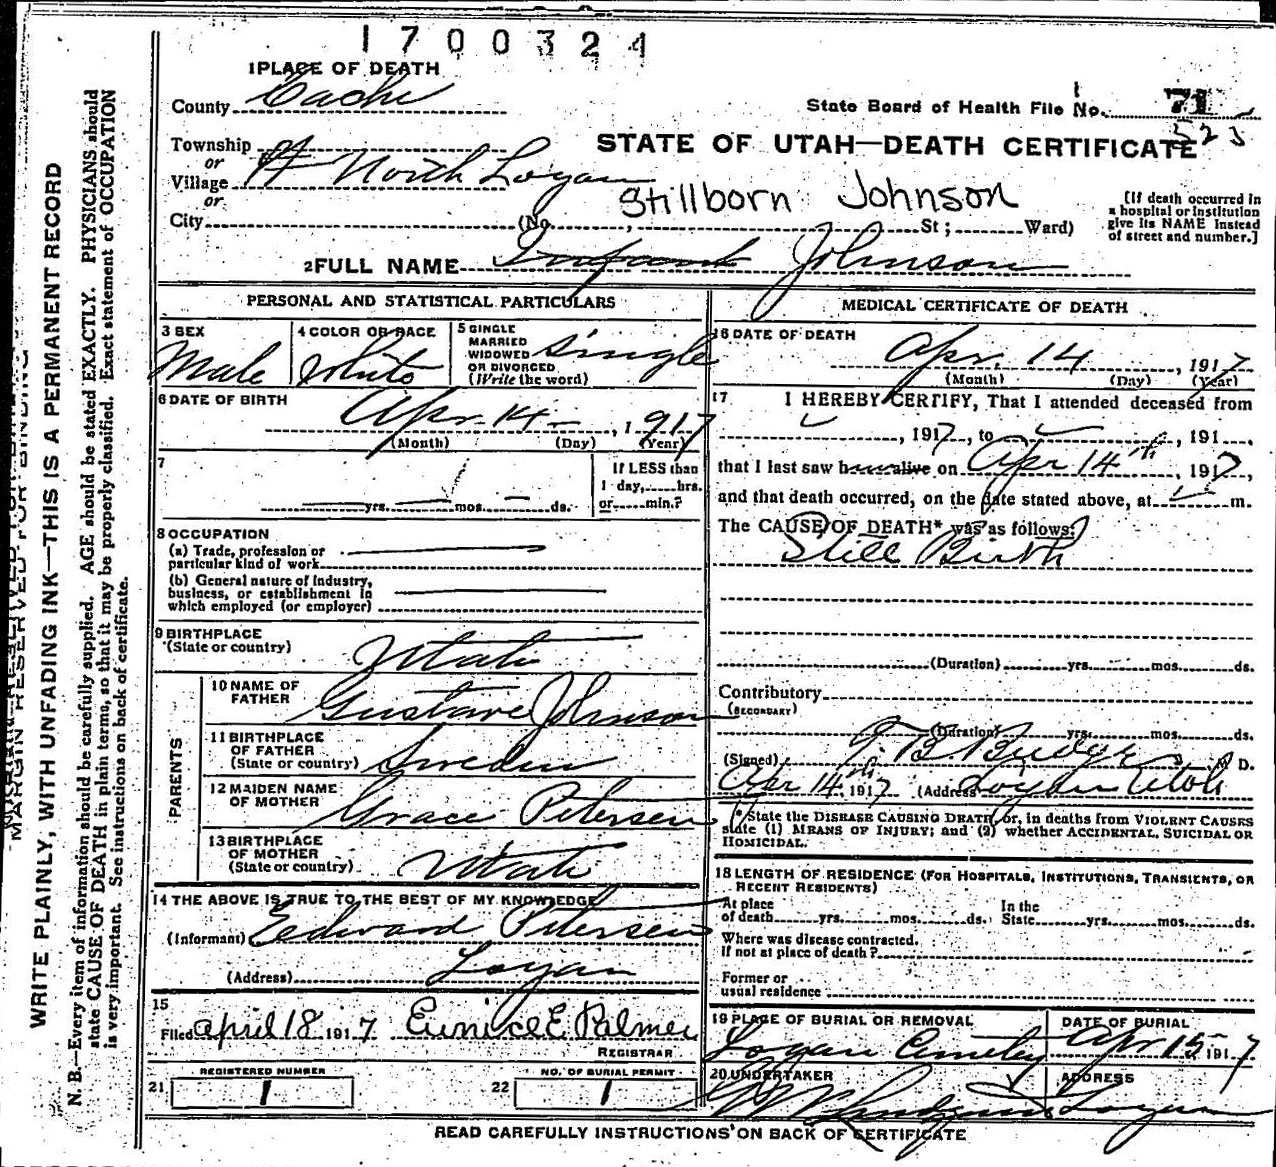 1700324
1 PLACE OF DEATH
County Cache
State Board of Health File No. 71
523
Township
or
Village North Logan
or
City (No. , St; Ward)
STATE OF UTAH—DEATH CERTIFICATE
Stillborn Johnson
[If death occurred in
a hospital or institution
give its NAME instead
of street and number.]
2 FULL NAME Infant Johnson
PERSONAL AND STATISTICAL PARTICULARS
3 SEX
Male
4 COLOR OR RACE
White
5 SINGLE
MARRIED
WIDOWED
OR DIVORCED
(Write the word)
Single
6 DATE OF BIRTH
Apr. 14 , 1917
(Month) (Day) (Year)
7
yrs. mos. ds.
If LESS than
1 day, hrs.
or min.?
8 OCCUPATION
(a) Trade, profession or
particular kind of work
(b) General nature of industry,
business, or establishment in
which employed (or employer)
9 BIRTHPLACE
(State or country)
Utah
PARENTS
10 NAME OF
FATHER
Gustave Johnson
11 BIRTHPLACE
OF FATHER
(State or country)
Sweden
12 MAIDEN NAME
OF MOTHER
Grace Petersen
13 BIRTHPLACE
OF MOTHER
(State or country)
Utah
14 THE ABOVE IS TRUE TO THE BEST OF MY KNOWLEDGE
(Informant) Edward Petersen
(Address) Logan
15
Filed April 18 1917 Eunice E Palmer
REGISTRAR
REGISTERED NUMBER
21 1
NO. OF BURIAL PERMIT
22 1
MEDICAL CERTIFICATE OF DEATH
16 DATE OF DEATH
Apr. 14 , 1917
(Month) (Day) (Year)
17 I HEREBY CERTIFY, That I attended deceased from
, 1917, to , 191 ,
that I last saw h alive on Apr 14th , 1917,
and that death occurred, on the date stated above, at m.
The CAUSE OF DEATH* was as follows:
Still Birth
(Duration) yrs. mos. ds.
Contributory
(SECONDARY)
(Duration) yrs. mos. ds.
(Signed) T. B. Budge M D.
Apr 14th, 1917 (Address Logan Utah
* State the DISEASE CAUSING DEATH, or, in deaths from VIOLENT CAUSES
state (1) MEANS OF INJURY; and (2) whether ACCIDENTAL, SUICIDAL OR
HOMICIDAL.
18 LENGTH OF RESIDENCE (FOR HOSPITALS, INSTITUTIONS, TRANSIENTS, OR
RECENT RESIDENTS)
At place
of death yrs. mos. ds.
In the
State yrs. mos. ds.
Where was disease contracted.
if not at place of death?
Former or
usual residence
19 PLACE OF BURIAL OR REMOVAL
Logan Cemetery
DATE OF BURIAL
Apr 15 1917
20 UNDERTAKER
ADDRESS
Logan
READ CAREFULLY INSTRUCTIONS ON BACK OF CERTIFICATE
MARGIN RESERVED FOR BINDING
WRITE PLAINLY, WITH UNFADING INK—THIS IS A PERMANENT RECORD
N. B.—Every item of information should be carefully supplied. AGE should be stated EXACTLY. PHYSICIANS should
state CAUSE OF DEATH in plain terms, so that it may be properly classified. Exact statement of OCCUPATION
is very important. See instructions on back of certificate.